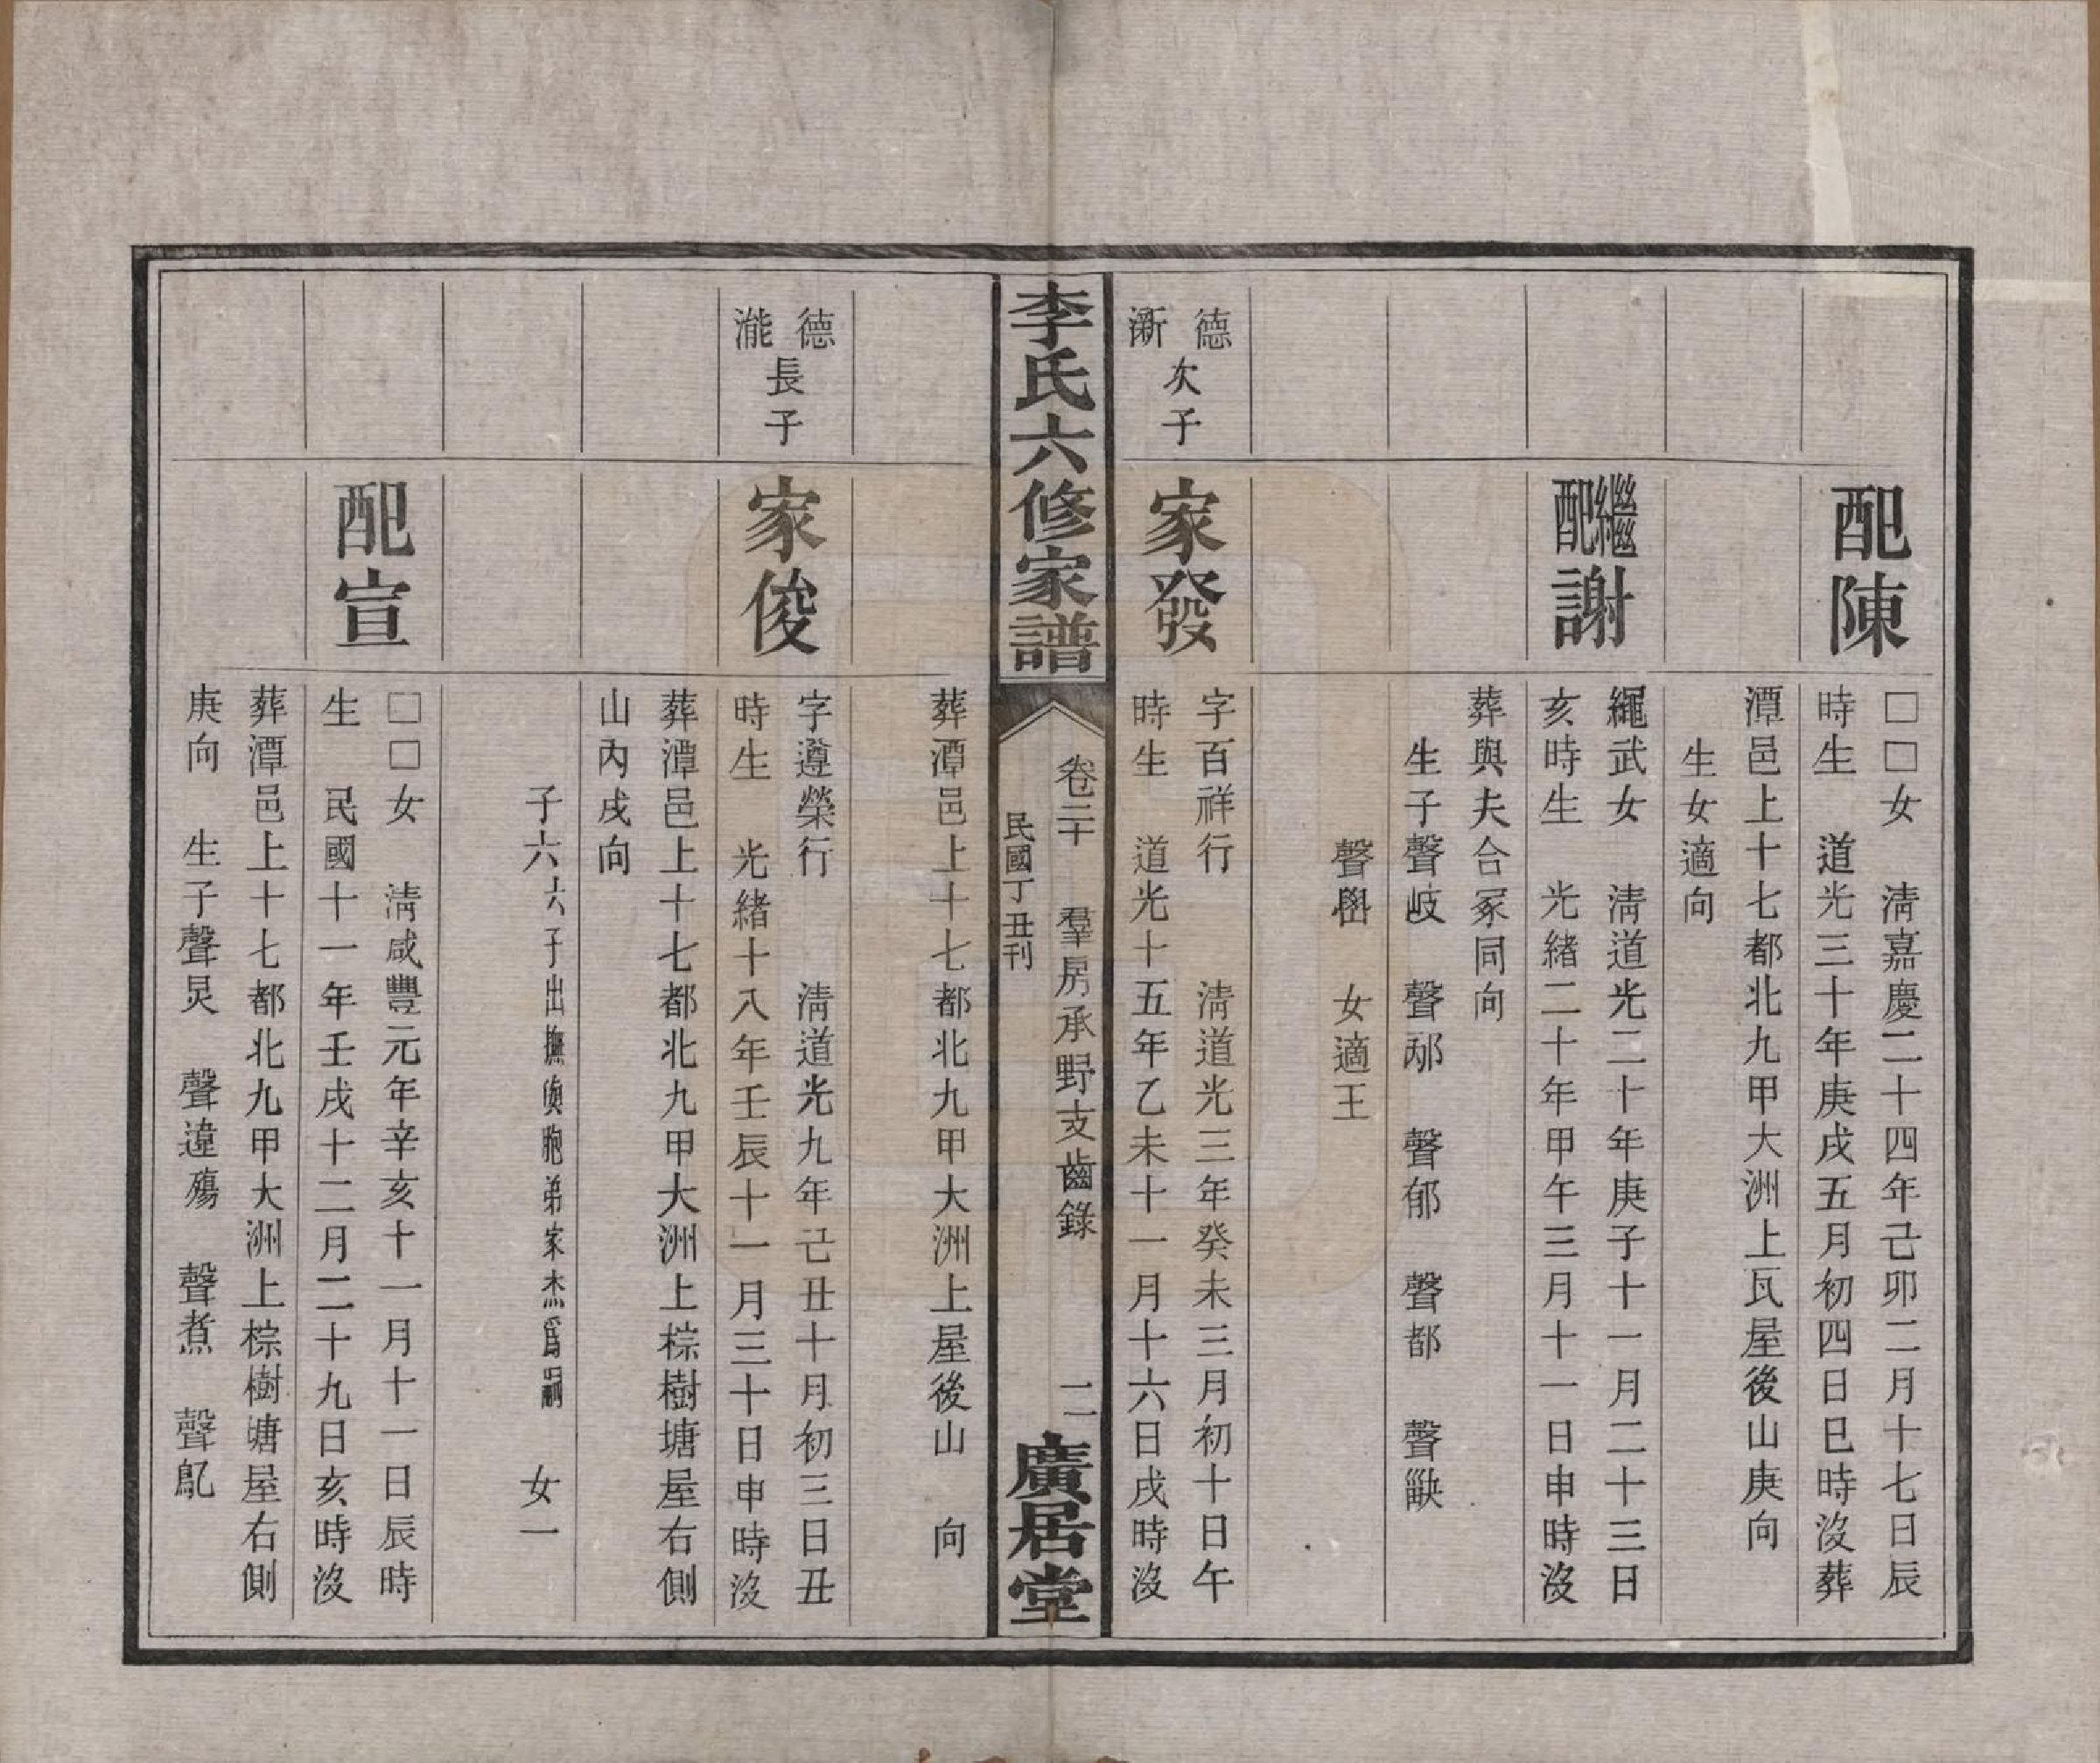 配陳
□□女　淸嘉慶二十四年己卯二月十七日辰
時生　道光三十年庚戌五月初四日巳時沒葬
潭邑上十七都北九甲大洲上瓦屋後山庚向
生女適向
繼配謝
繩武女　淸道光二十年庚子十一月二十三日
亥時生　光緒二十年甲午三月十一日申時沒
葬與夫合冢同向
生子聲岐　聲邴　聲郁　聲都　聲
聲　女適王
德漸次子
家發
字百祥行　　淸道光三年癸未三月初十日午
時生　道光十五年乙未十一月十六日戌時沒
李氏六修家譜
卷二十　羣房承野支齒錄　二
民國丁丑刊
廣居堂
葬潭邑上十七都北九甲大洲上屋後山　向
德瀧長子
家俊
字遵榮行　　淸道光九年己丑十月初三日丑
時生　光緒十八年壬辰十一月三十日申時沒
葬潭邑上十七都北九甲大洲上棕樹塘屋右側
山內戌向
子六六子出撫胞弟家杰爲嗣　女一
配宣
□□女　淸咸豐元年辛亥十一月十一日辰時
生　民國十一年壬戌十二月二十九日亥時沒
葬潭邑上十七都北九甲大洲上棕樹塘屋右側
庚向　生子聲炅　聲違殤　聲煮　聲